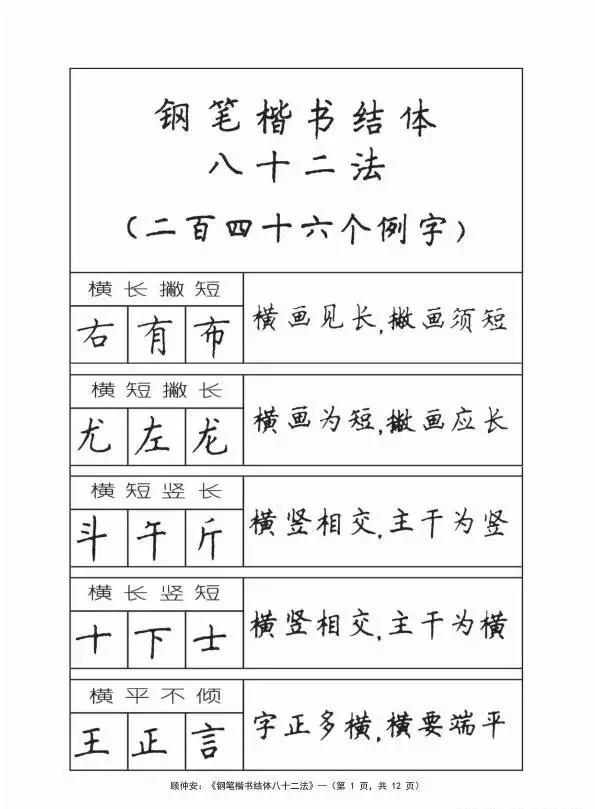 钢笔楷书结体
八十二法
(二百四十六个例字)
横长撇短
右有布
横画见长,撇画须短
横短撇长
尤左龙
横画为短,撇画应长
横短竖长
斗午斤
横竖相交,主干为竖
横长竖短
十下士
横竖相交,主干为横
横平不倾
王正言
字正多横,横要端平
顾仲安:《钢笔楷书结体八十二法》—(第 1 页,共 12 页)